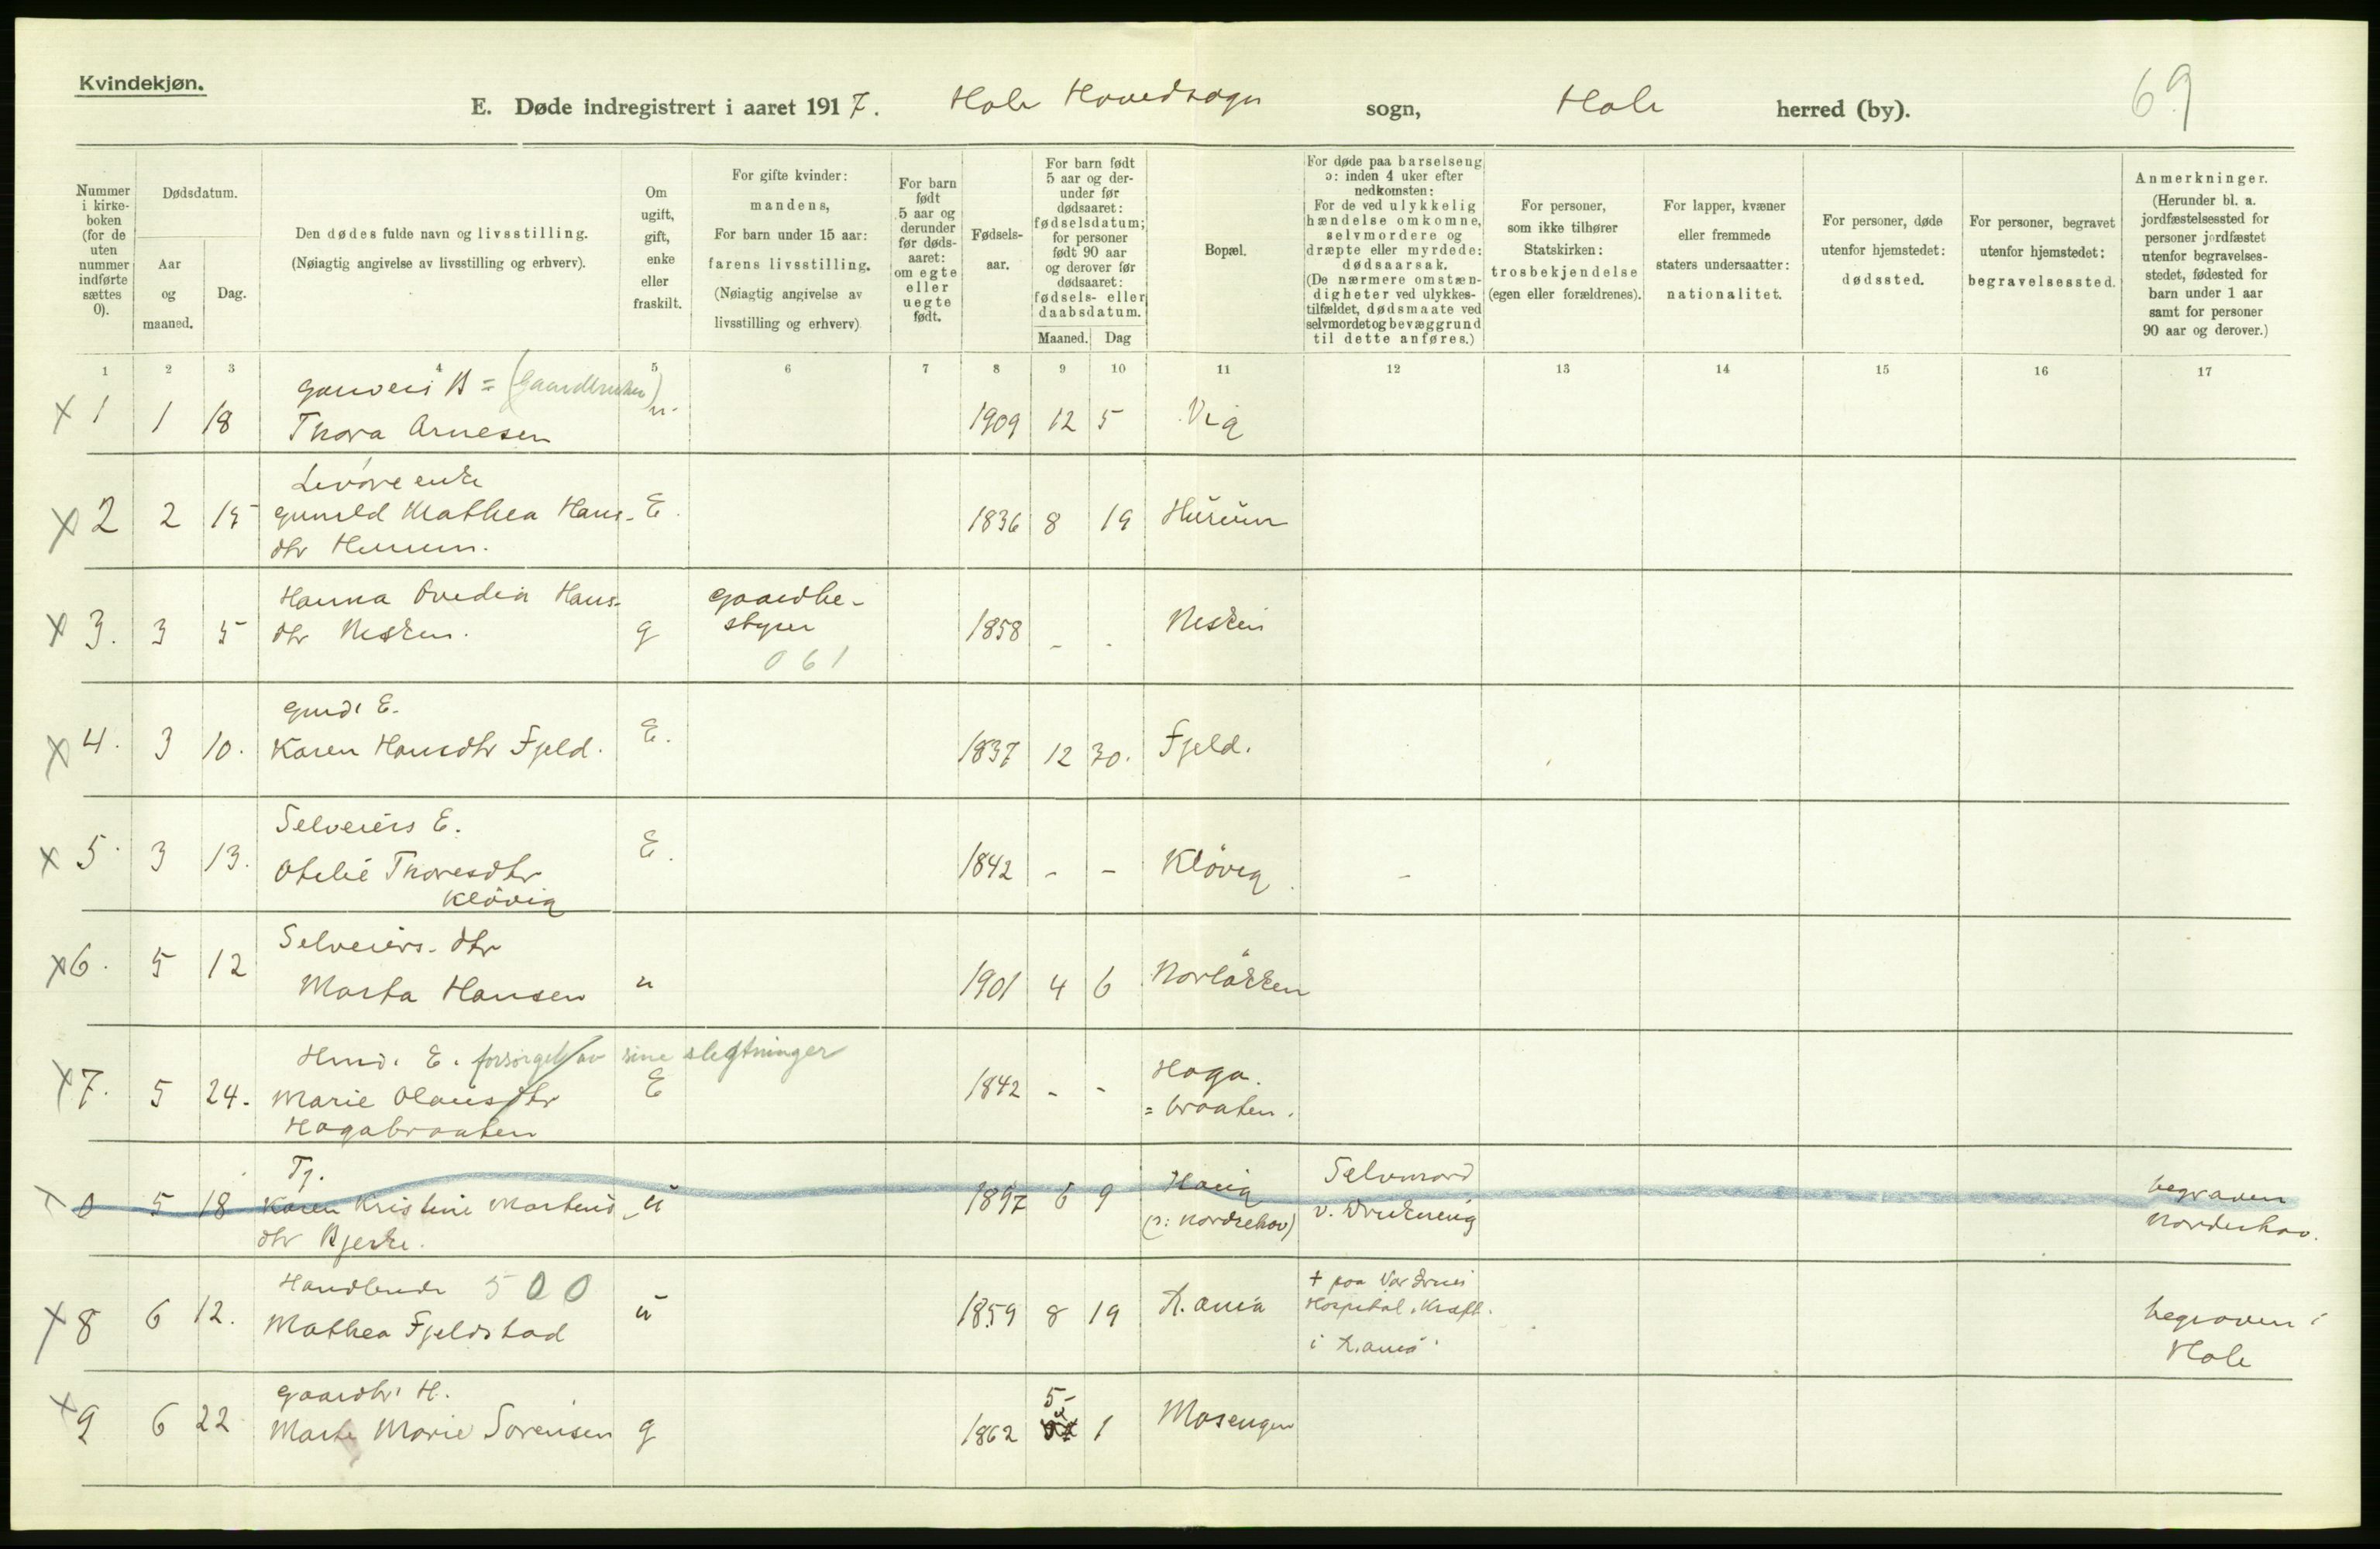 Kvindekjøn.
E. Døde indregistrert i aaret 1917. Hole Hovedsogn sogn, Hole herred (by). 69
Nummer i kirke-boken (for de uten nummer indførte sættes 0).
Dødsdatum.
Aar og maaned.
Dag.
Den dødes fulde navn og livsstilling.
(Nøiagtig angivelse av livsstilling og erhverv).
Om ugift, gift, enke eller fraskilt.
For gifte kvinder: mandens,
For barn under 15 aar: farens livsstilling.
(Nøiagtig angivelse av livsstilling og erhverv)
For barn født 5 aar og derunder før døds-aaret: om egte eller uegte født.
Fødsels-aar.
For barn født 5 aar og der-under før dødsaaret: fødselsdatum; for personer født 90 aar og derover før dødsaaret: fødsels- eller daabsdatum.
Maaned. Dag
Bopæl.
For døde paa barselseng ɔ: inden 4 uker efter nedkomsten:
For de ved ulykkelig hændelse omkomne, selvmordere og dræpte eller myrdede: dødsaarsak.
(De nærmere omstæn-digheter ved ulykkes-tilfældet, dødsmaate ved selvmordet og bevæggrund til dette anføres.)
For personer, som ikke tilhører Statskirken: trosbekjendelse (egen eller forældrenes).
For lapper, kvæner eller fremmede staters undersaatter: nationalitet.
For personer, døde utenfor hjemstedet: dødssted.
For personer, begravet utenfor hjemstedet: begravelsessted.
Anmerkninger.
(Herunder bl. a. jordfæstelsessted for personer jordfæstet utenfor begravelses-stedet, fødested for barn under 1 aar samt for personer 90 aar og derover.)
1 2 3 4 5 6 7 8 9 10 11 12 13 14 15 16 17
B = (Gaardbruker)
x 1 1 18 Thora Arnesen u. 1909 12 5 Vig
enke
x 2 2 15 Gunild Mathea Hans- E. 1836 8 19 Hurum
dtr Hurum.
Hanna Ovedia Hans- gaardbe-
x 3. 3 5 dtr Nesken. g styrer 1858 - - Nesken
061
Gmd. E.
x 4. 3 10. Karen Hansdtr Fjeld. E. 1837 12 30. Fjeld.
Selveiers E.
x 5. 3 13. Otelie Thoresdtr E. 1842 - - Kløvig
Kløvig
Selveiers. dtr
x 6. 5 12 Marta Hansen u 1901 4 6 Norløkken
Hmd. E. forsørget av sine slegtninger
x 7. 5 24. Marie Olausdtr E 1842 - - Haga.
Hagabraaten = braaten.
Tj. Selvmord
x 0 5 18 Karen Kristine Martens- u 1897 6 9 Haug v. Drukning begraven
dtr Bjerke. (ɔ: Norderhov) Norderhov.
Handlende 500 + paa Vor Frues
x 8 6 12. Mathea Fjeldstad u 1859 8 19 K.ania Hospital. Kræft. begraven i
i K.ania Hole
Gaardbr. H. 5
x 9 6 22 Marte Marie Sørensen g 1862 1 Mosengen